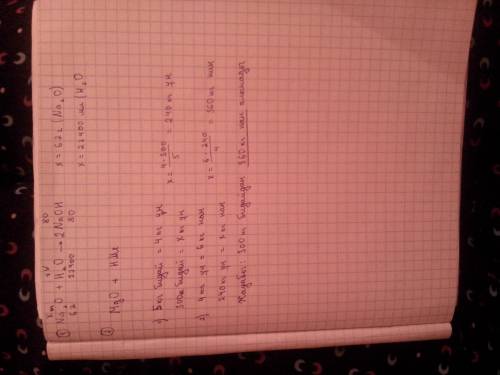 ① Na₂O + H₂O → 2NaOH
62 22400 80
x = 62 г (Na₂O)
x = 22400 мл (H₂O
② MgO + HCl
1) 5 кг бидай = 4 кг ун
300 кг бидай = x кг ун
x = 4 · 300 / 5 = 240 кг ун
2) 4 кг ун = 6 кг нан
240 кг ун = x кг нан
x = 6 · 240 / 4 = 360 кг нан
Жауабы: 300 кг бидайдан 360 кг нан алынады